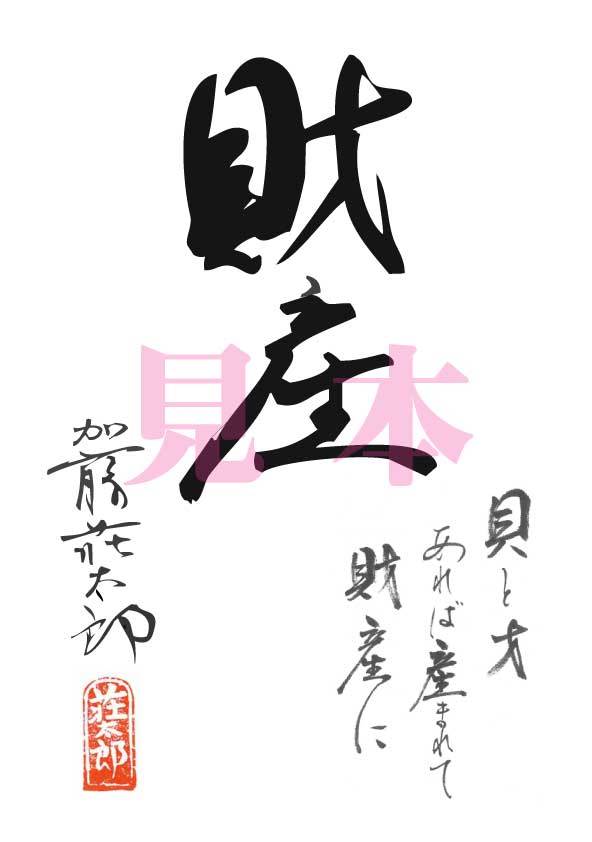 財産
見本
貝と才
あれば産まれて
財産に
加藤荘太郎
荘太郎